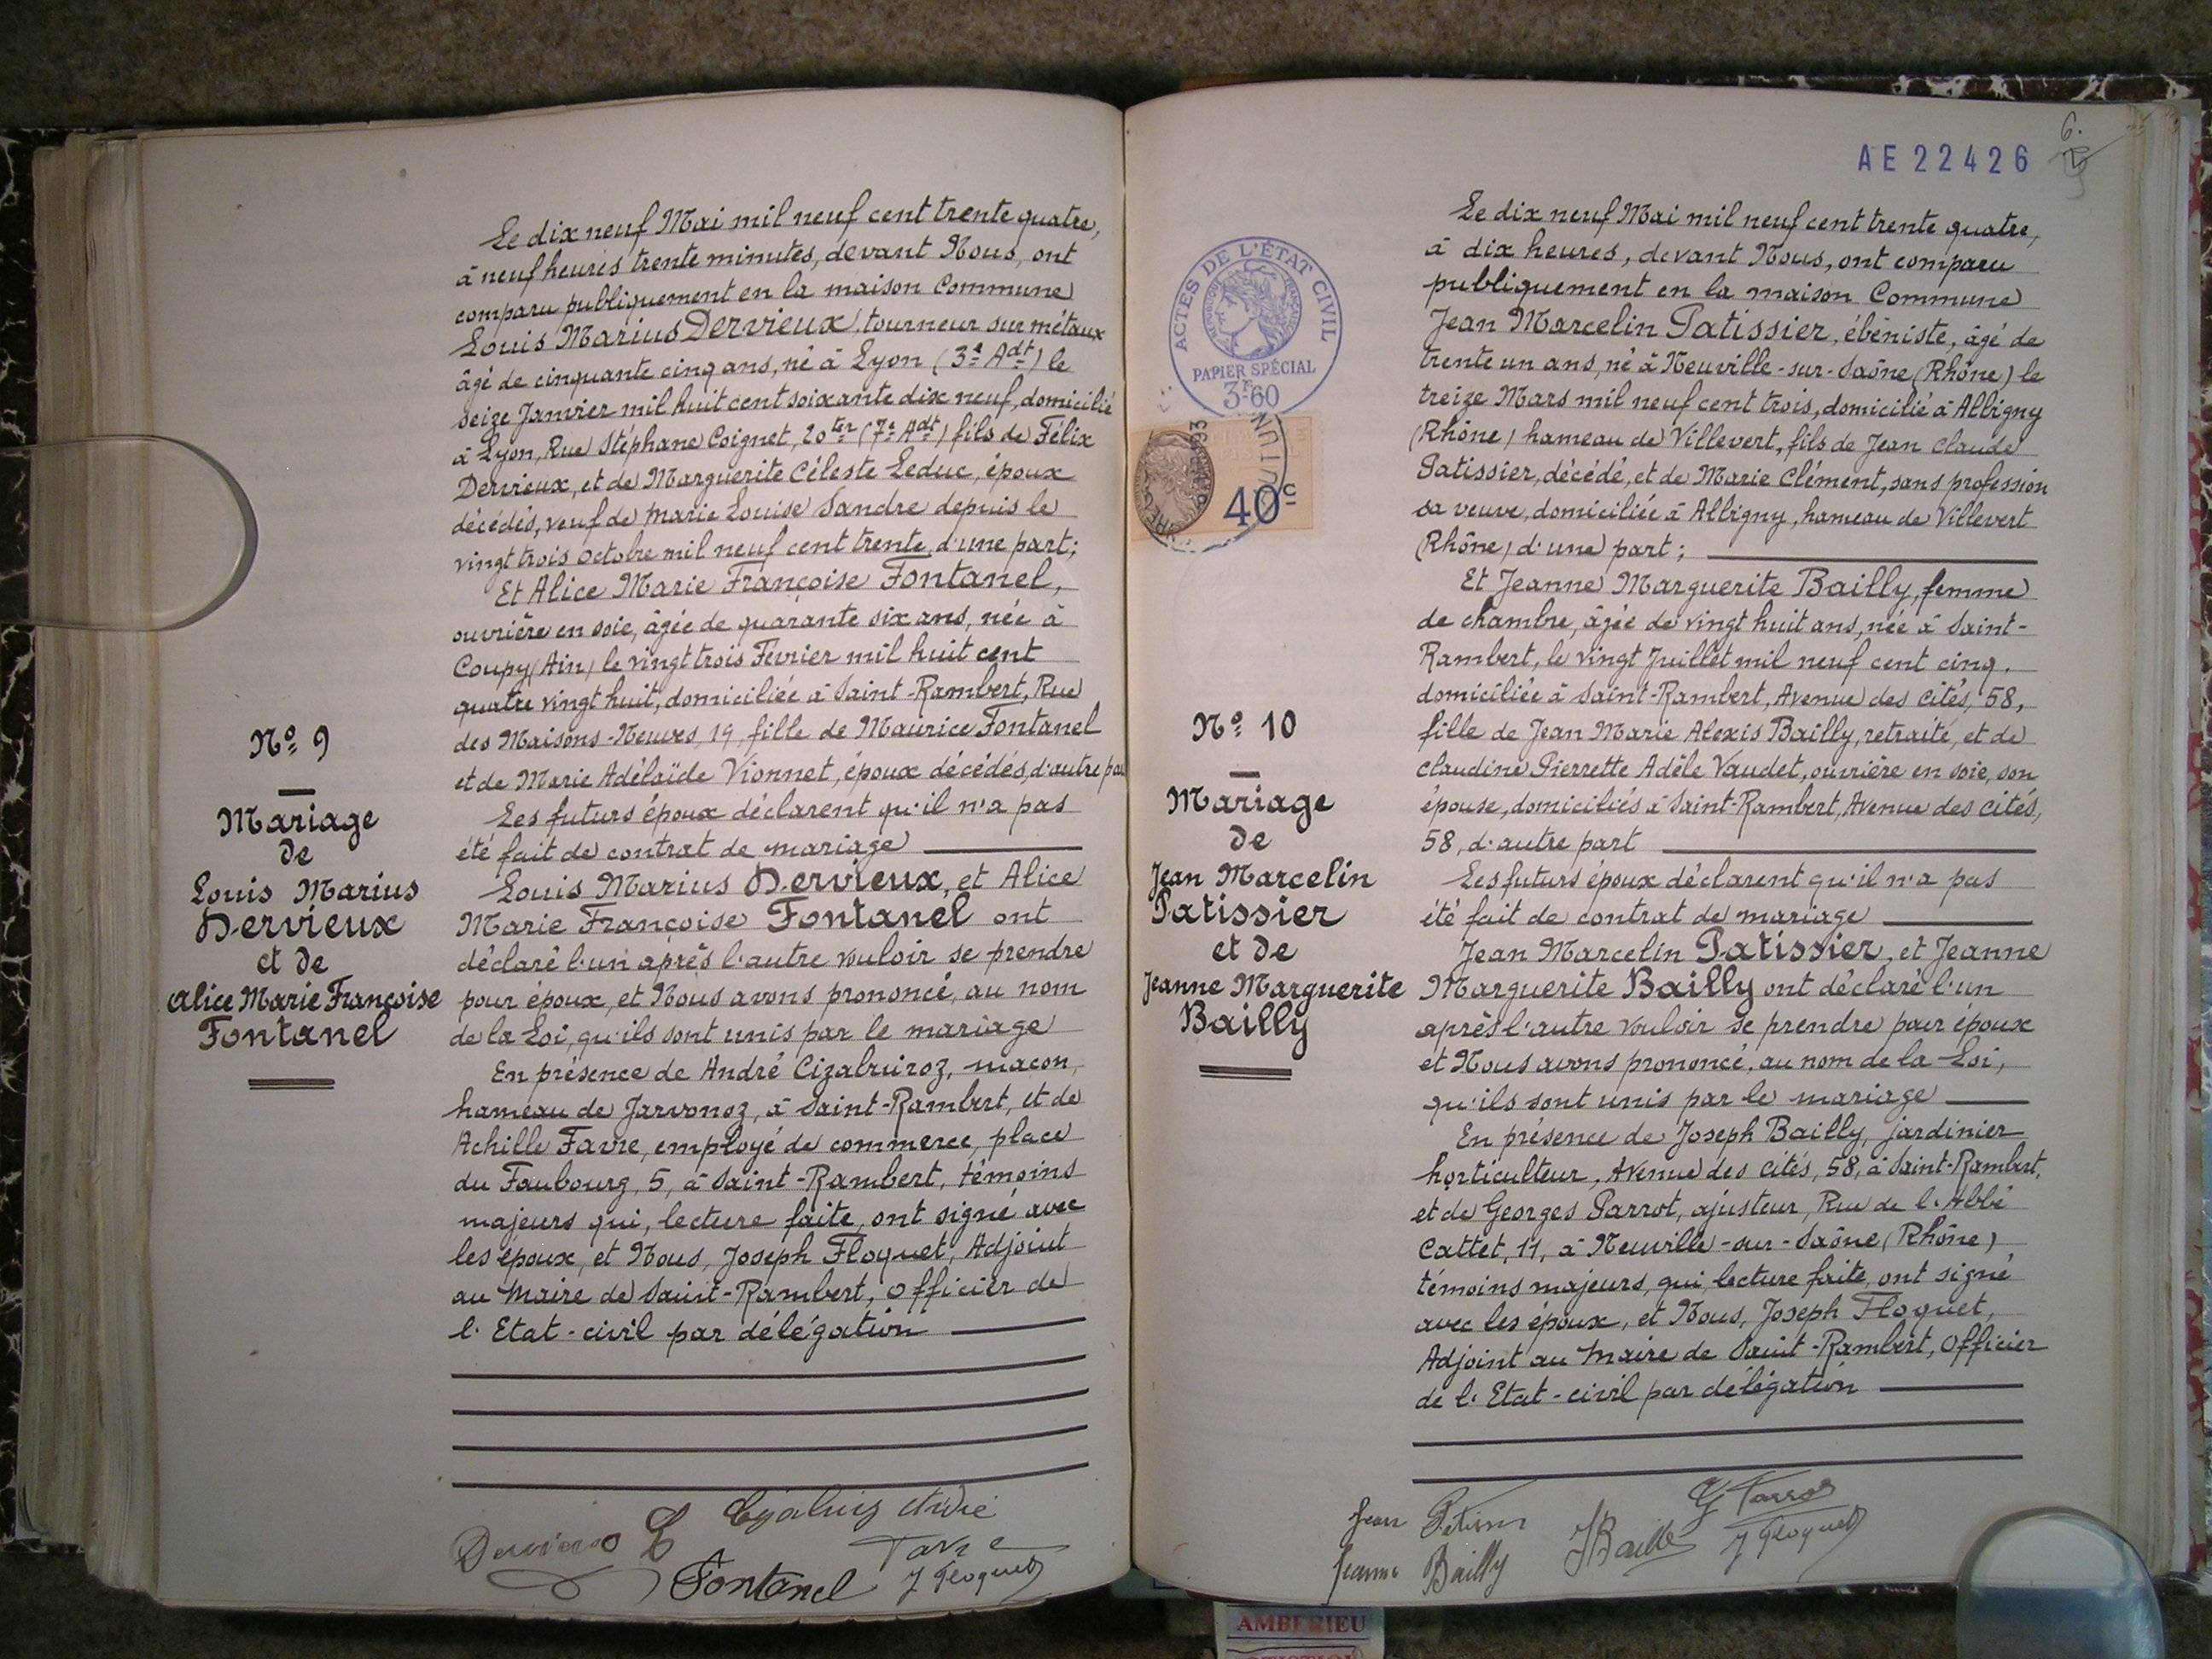 Le dix neuf Mai mil neuf cent trente quatre,
à neuf heures trente minutes, devant Nous, ont
comparu publiquement en la maison Commune
Louis Marius Dervieux, tourneur sur métaux
âgé de cinquante cinq ans, né à Lyon (3e Adt) le
seize Janvier mil huit cent soixante dix neuf, domicilié
à Lyon, Rue Stéphane Coignet, 20ter (7e Adt) fils de Félix
Dervieux, et de Marguerite Céleste Leduc, époux
décédés, veuf de Marie Louise Sandre depuis le
vingt trois Octobre mil neuf cent trente, d'une part;
Et Alice Marie Françoise Fontanel,
ouvrière en soie, âgée de quarante six ans, née à
Coupy (Ain) le vingt trois Février mil huit cent
quatre vingt huit, domiciliée à Saint-Rambert, Rue
des Maisons-Neuves, 19, fille de Maurice Fontanel
et de Marie Adélaïde Vionnet, époux décédés, d'autre par
Les futurs époux déclarent qu'il n'a pas
été fait de contrat de mariage
Louis Marius Dervieux, et Alice
Marie Françoise Fontanel ont
déclaré l'un après l'autre vouloir se prendre
pour époux, et Nous avons prononcé, au nom
de la Loi, qu'ils sont unis par le mariage
En présence de André Cizabuiroz, maçon,
hameau de Jarvonoz, à Saint-Rambert, et de
Achille Favre, employé de commerce, place
du Faubourg, 5, à Saint-Rambert, témoins
majeurs qui, lecture faite, ont signé avec
les époux, et Nous, Joseph Floquet, Adjoint
au Maire de Saint-Rambert, Officier de
l'Etat-civil par délégation
No 9
Mariage
de
Louis Marius
Dervieux
et de
Alice Marie Françoise
Fontanel
André
Favre
Fontanel
J Floquet
AE 22426
6.
ACTES DE L'ÉTAT CIVIL
RÉPUBLIQUE FRANÇAISE
PAPIER SPÉCIAL
3F60
40c
Le dix neuf Mai mil neuf cent trente quatre,
à dix heures, devant Nous, ont comparu
publiquement en la maison Commune
Jean Marcelin Patissier, ébéniste, âgé de
trente un ans, né à Neuville-sur-Saône (Rhône) le
treize Mars mil neuf cent trois, domicilié à Albigny
(Rhône) hameau de Villevert, fils de Jean Claude
Patissier, décédé, et de Marie Clément, sans profession
sa veuve, domiciliée à Albigny, hameau de Villevert
(Rhône) d'une part;
Et Jeanne Marguerite Bailly, femme
de chambre, âgée de vingt huit ans, née à Saint-
Rambert, le vingt Juillet mil neuf cent cinq,
domiciliée à Saint-Rambert, Avenue des Cités, 58,
fille de Jean Marie Alexis Bailly, retraité, et de
Claudine Pierrette Adèle Vaudet, ouvrière en soie, son
épouse, domiciliés à Saint-Rambert, Avenue des Cités,
58, d'autre part
Les futurs époux déclarent qu'il n'a pas
été fait de contrat de mariage
Jean Marcelin Patissier, et Jeanne
Marguerite Bailly ont déclaré l'un
après l'autre vouloir se prendre pour époux
et Nous avons prononcé, au nom de la Loi,
qu'ils sont unis par le mariage
En présence de Joseph Bailly, jardinier
horticulteur, Avenue des Cités, 58, à Saint-Rambert,
et de Georges Parrot, ajusteur, Rue de l'Abbé
Cattet, 11, à Neuville-sur-Saône (Rhône),
témoins majeurs, qui, lecture faite, ont signé
avec les époux, et Nous, Joseph Floquet,
Adjoint au Maire de Saint-Rambert, Officier
de l'Etat-civil par délégation
No 10
Mariage
de
Jean Marcelin
Patissier
et de
Jeanne Marguerite
Bailly
Jean
Jeanne Bailly
J Bailly
J Floquet
AMBERIEU